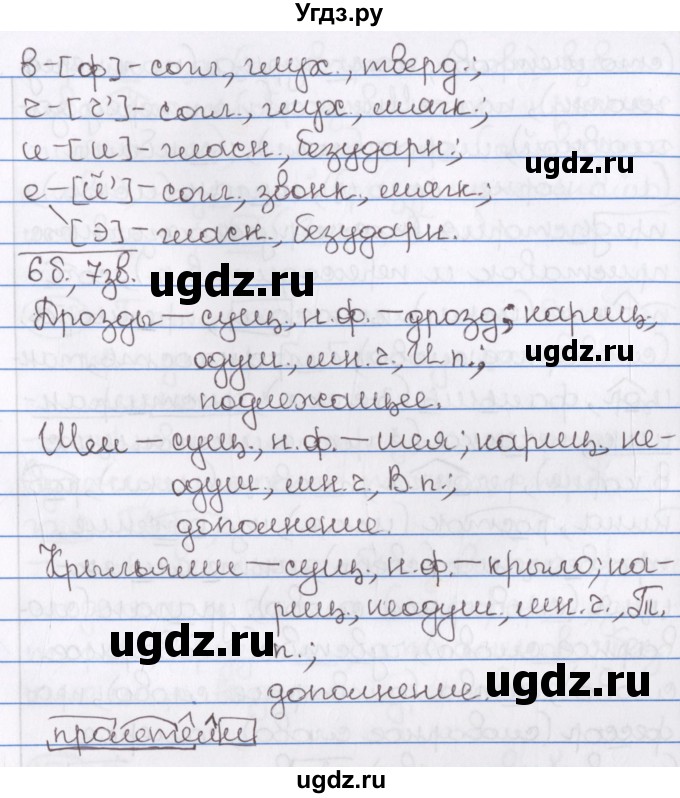 Угдз.ру
в-[ф]-согл., глух., тверд.;
ч-[ч']-согл., глух., мягк.;
и-[и]-гласн., безударн.;
е-[й']-согл., звонк., мягк.;
[э]-гласн. безударн.
6б., 7зв.
Дрозды – сущ., н.ф. – дрозд; нариц.,
одуш., мн.ч., И.п.;
подлежащее.
Шеи – сущ., н.ф. – шея; нариц., не-
одуш., мн.ч., В.п.;
дополнение.
Крыльями – сущ., н.ф. – крыло; на-
риц., неодуш., мн.ч., Т.
п.;
дополнение.
пролетели
ugdz.ru
ugdz.ru
ugdz.ru
ugdz.ru
ugdz.ru
ugdz.ru
ugdz.ru
ugdz.ru